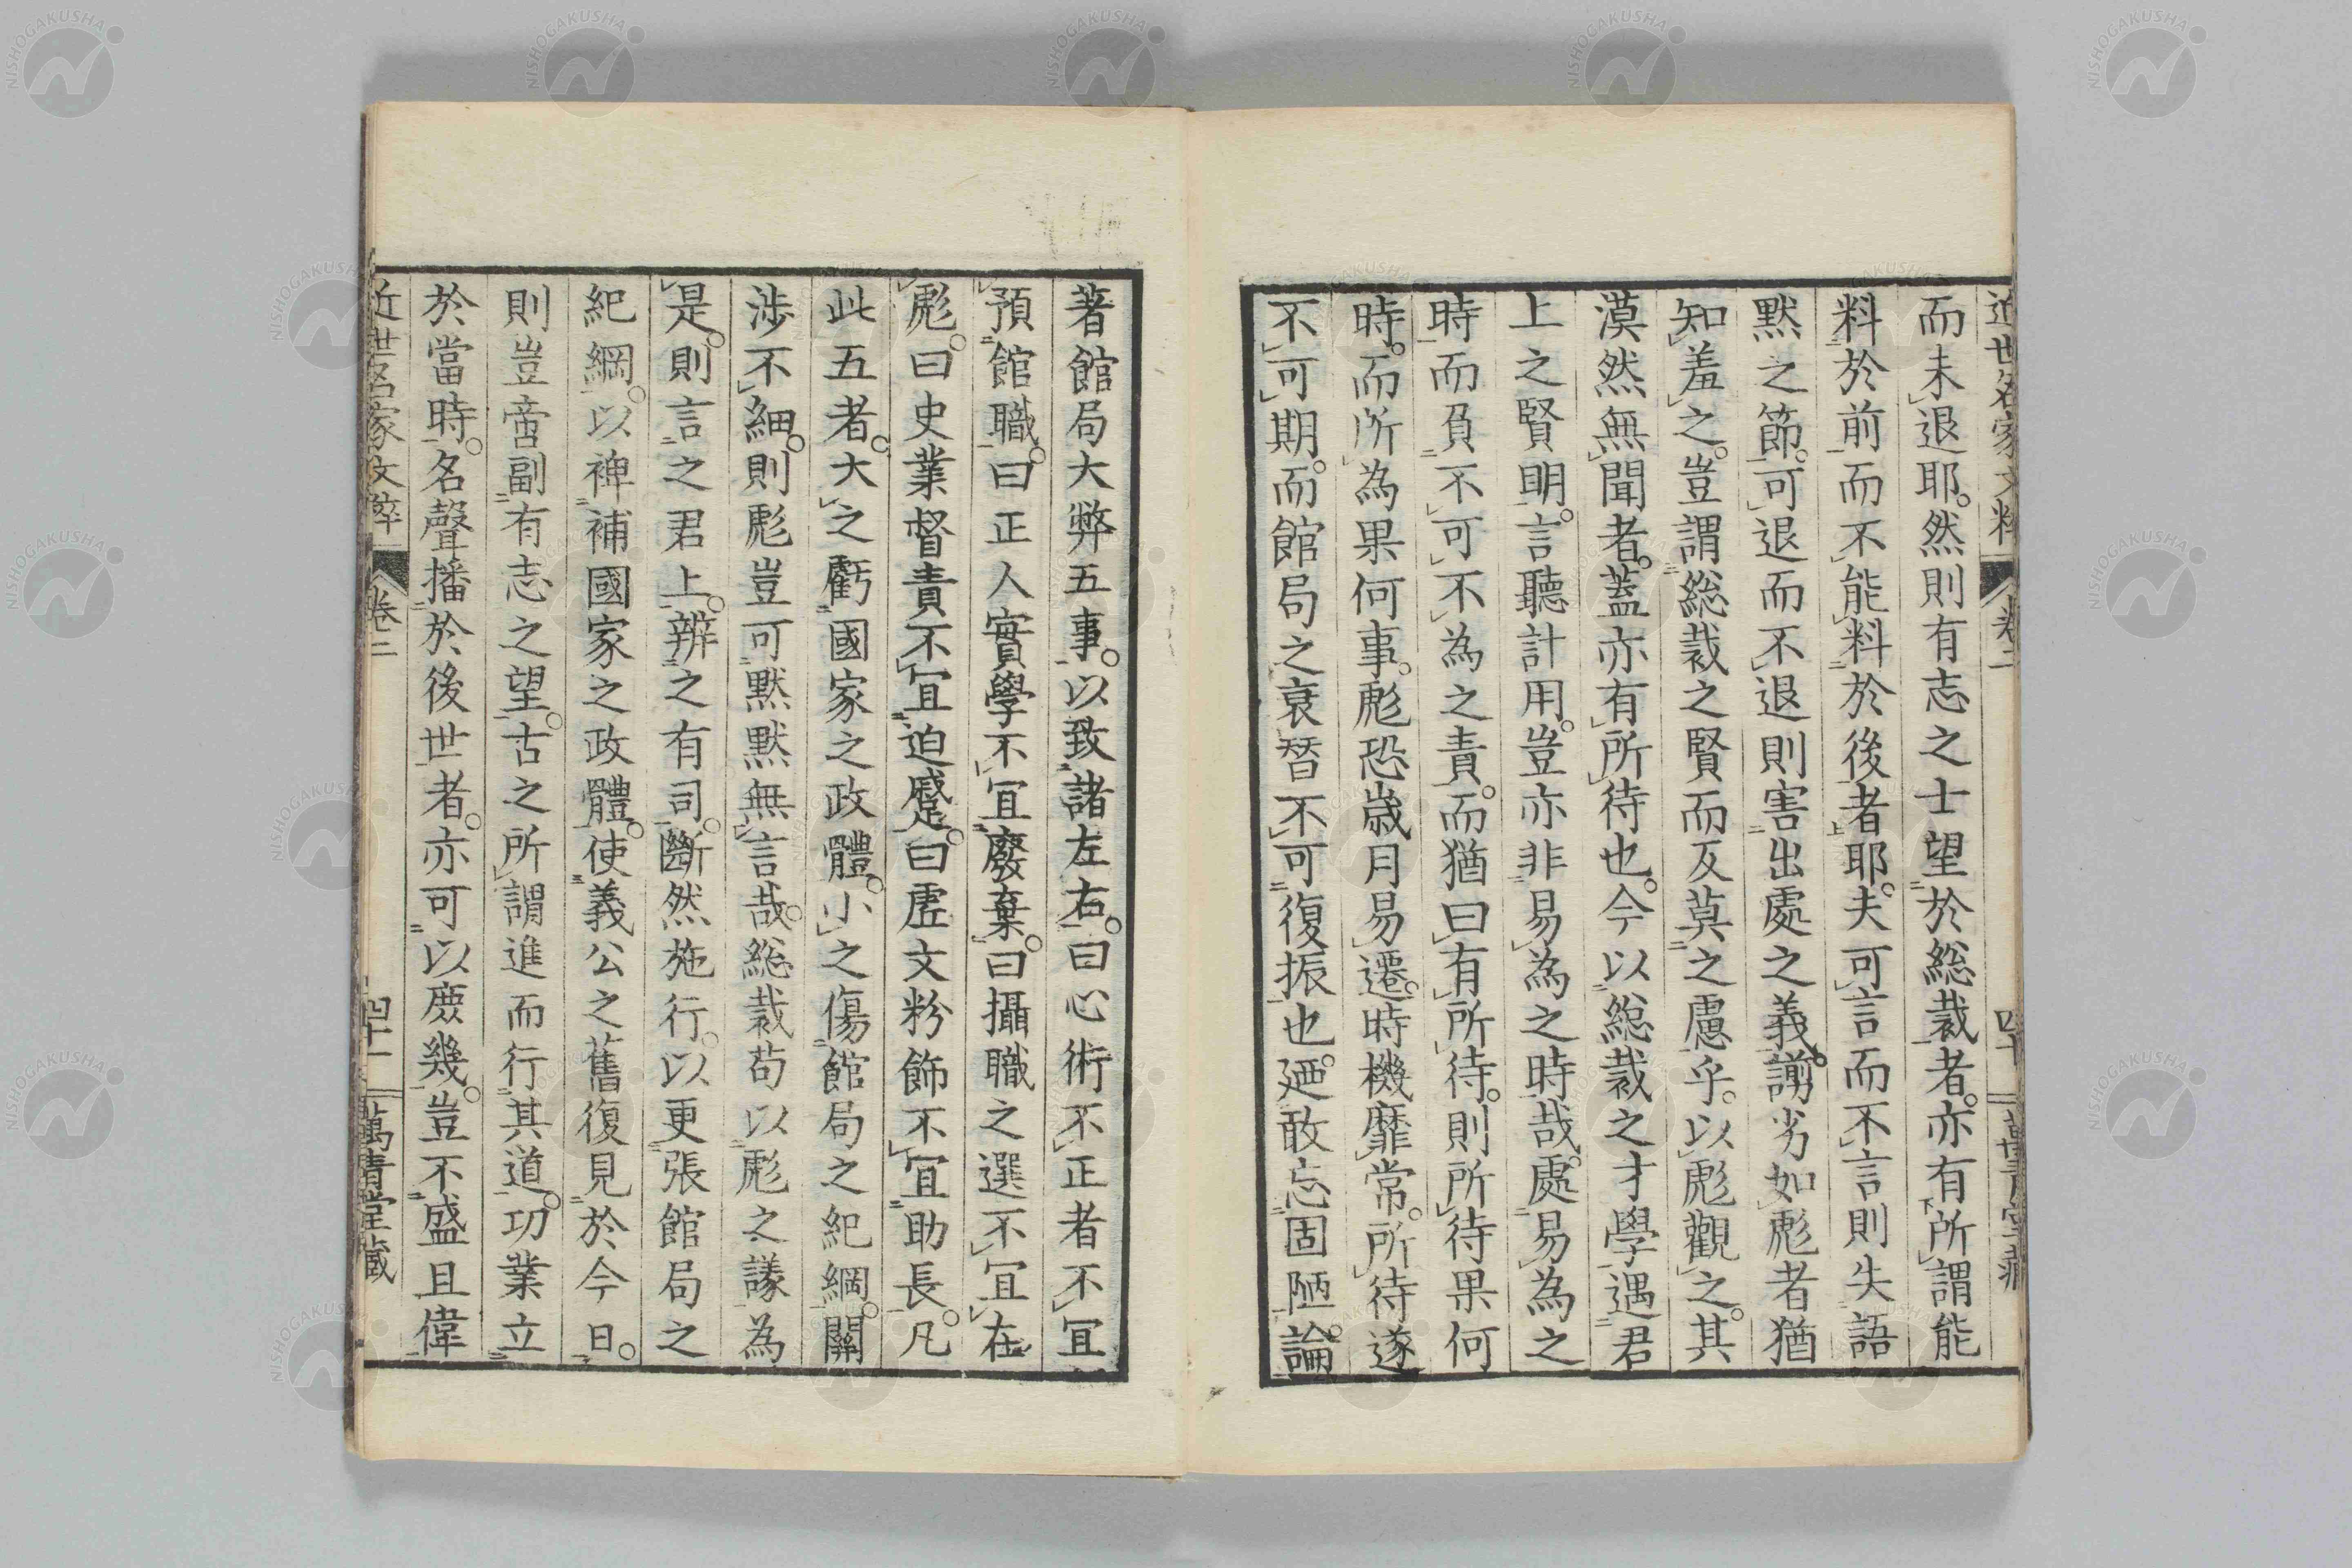 近世名家文粹 卷二 四十 萬青堂藏
而未退耶。然則有志之士望於総裁者。亦有所謂能
料於前而不能料於後者耶。夫可言而不言則失語
默之節。可退而不退則害出處之義。謭劣如彪者猶
知羞之。豈謂総裁之賢而反莫之慮乎。以彪觀之。其
漠然無聞者。蓋亦有所待也。今以総裁之才學遇君
上之賢明。言聽計用。豈亦非易為之時哉。處易為之
時而負不可不為之責。而猶曰有所待。則所待果何
時。而所為果何事。彪恐歳月易遷。時機靡常。所待遂
不可期。而館局之衰替不可復振也。廼敢忘固陋。論
著館局大弊五事。以致諸左右。曰心術不正者不宜
預館職。曰正人實學不宜廢棄。曰攝職之選不宜在
彪。曰史業督責不宜迫蹙。曰虛文粉飾不宜助長。凡
此五者。大之虧國家之政體。小之傷館局之紀綱。關
涉不細。則彪豈可默默無言哉。総裁苟以彪之議為
是。則言之君上。辨之有司。斷然施行。以更張館局之
紀綱。以裨補國家之政體。使義公之舊復見於今日。
則豈啻副有志之望。古之所謂進而行其道。功業立
於當時。名聲播於後世者。亦可以庶幾。豈不盛且偉
近世名家文粹 卷二 四十一 萬青堂藏
NISHOGAKUSHA